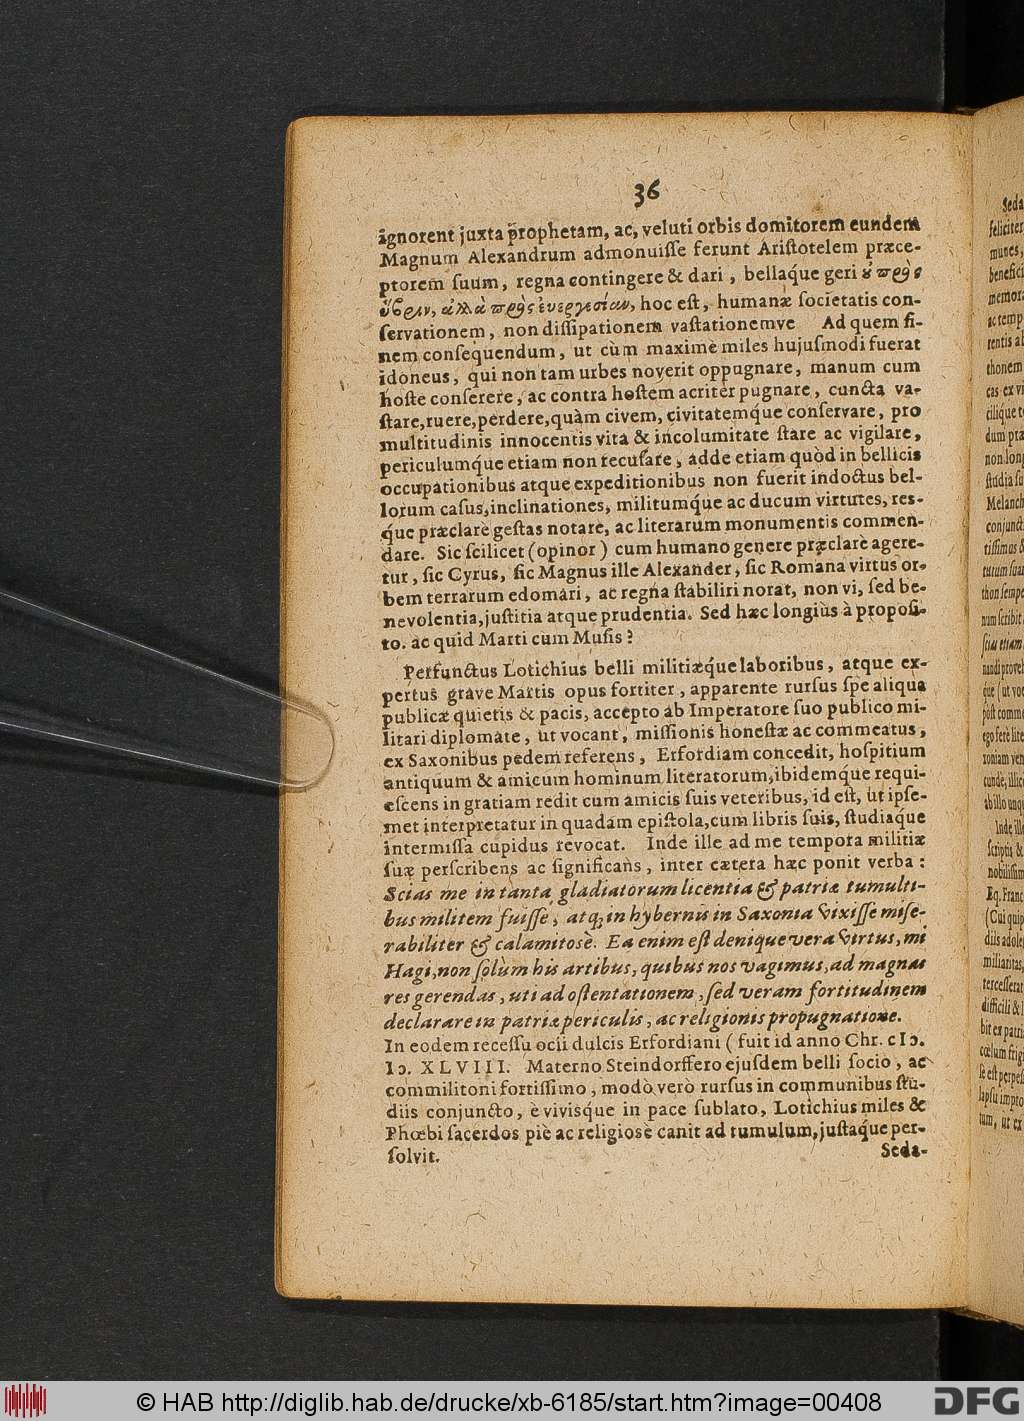 36
ignorent juxta prophetam, ac, veluti orbis domitorem eundem
Magnum Alexandrum admonuiſſe ferunt Ariſtotelem præce-
ptorem ſuum, regna contingere & dari, bellaque geri ȣ πρὸς
ὕβριν, ἀλλὰ πρὸς ἐυεργεσίαν, hoc eſt, humanæ ſocietatis con-
ſervationem, non diſſipationem vaſtationemve Ad quem fi-
nem conſequendum, ut cùm maximè miles hujuſmodi fuerat
idoneus, qui non tam urbes noverit oppugnare, manum cum
hoſte conſerere, ac contra hoſtem acriter pugnare, cuncta va-
ſtare, ruere, perdere, quàm civem, civitatemq́ue conſervare, pro
multitudinis innocentis vita & incolumitate ſtare ac vigilare,
periculumq́ue etiam non recuſare, adde etiam quòd in bellicis
occupationibus atque expeditionibus non fuerit indoctus bel-
lorum caſus, inclinationes, militumq́ue ac ducum virtutes, res-
q́ue præclarè geſtas notare, ac literarum monumentis commen-
dare. Sic ſcilicet (opinor) cum humano genere præclarè agere-
tur, ſic Cyrus, ſic Magnus ille Alexander, ſic Romana virtus or-
bem terrarum edomári, ac regna ſtabiliri norat, non vi, ſed be-
nevolentia, juſtitia atque prudentia. Sed hæc longiùs à propoſi-
to. ac quid Marti cum Muſis?
Perfunctus Lotichius belli militiæq́ue laboribus, atque ex-
pertus grave Martis opus fortiter, apparente rurſus ſpe aliqua
publicæ quietis & pacis, accepto ab Imperatore ſuo publico mi-
litari diplomate, ut vocant, miſſionis honeſtæ ac commeatus,
ex Saxonibus pedem referens, Erfordiam concedit, hoſpitium
antiquum & amicum hominum literatorum, ibidemq́ue requi-
eſcens in gratiam redit cum amicis ſuis veteribus, id eſt, ut ipſe-
met interpretatur in quadam epiſtola, cum libris ſuis, ſtudiaq́ue
intermiſſa cupidus revocat. Inde ille ad me tempora militiæ
ſuæ perſcribens ac ſignificans, inter cætera hæc ponit verba:
Scias me in tanta gladiatorum licentia & patriæ tumulti-
bus militem fuiſſe, atq, in hybernis in Saxonia vixiſſe miſe-
rabiliter & calamitosè. Ea enim eſt denique vera virtus, mi
Hagi, non ſolùm his artibus, quibus nos vagimus, ad magnas
res gerendas, uti ad oſtentationem, ſed veram fortitudinem
declarare in patriæ periculis, ac religionis propugnatione.
In eodem receſſu ocii dulcis Erfordiani (fuit id anno Chr. cIↄ.
Iↄ. XLVIII. Materno Steindorffero ejuſdem belli ſocio, ac
commilitoni fortiſſimo, modò verò rurſus in communibus ſtu-
diis conjuncto, è vivisque in pace ſublato, Lotichius miles &
Phœbi ſacerdos piè ac religiosè canit ad tumulum, juſtaq́ue per-
ſolvit.
Seda-
© HAB http://diglib.hab.de/drucke/xb-6185/start.htm?image=00408
DFG